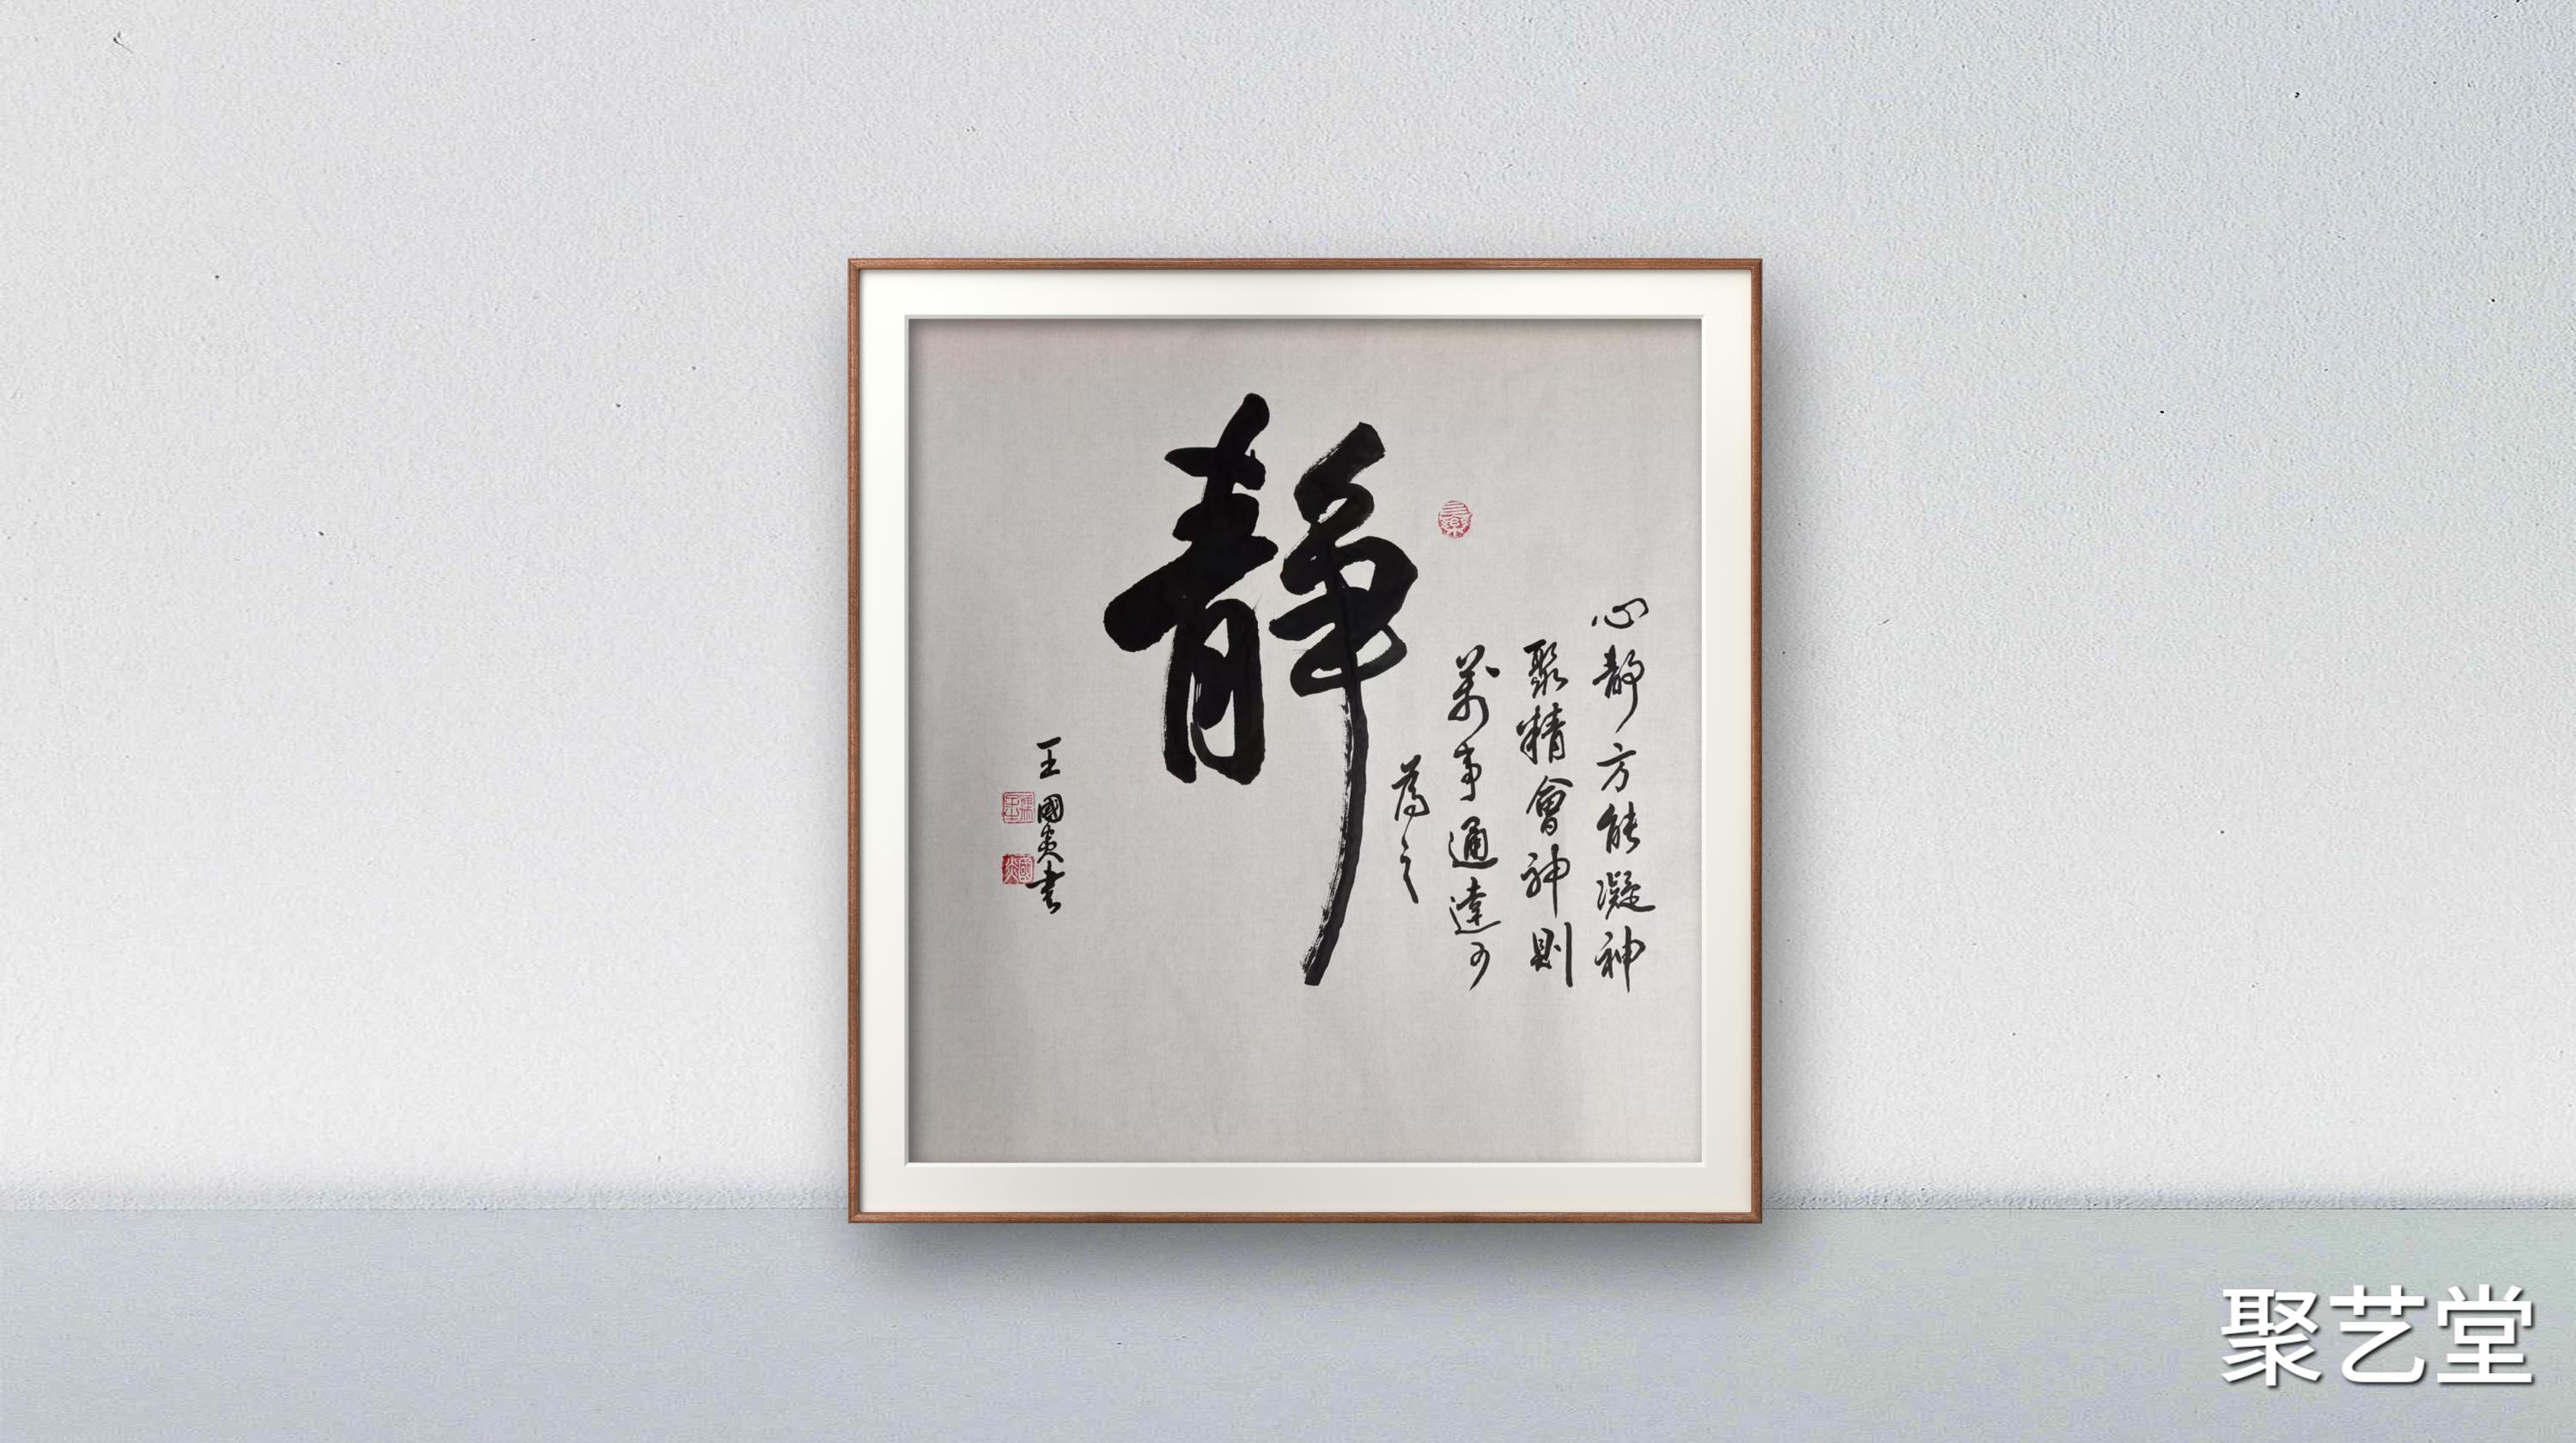 心靜方能凝神
聚精會神則
萬事通達可
為之
靜
王國炎書
聚艺堂